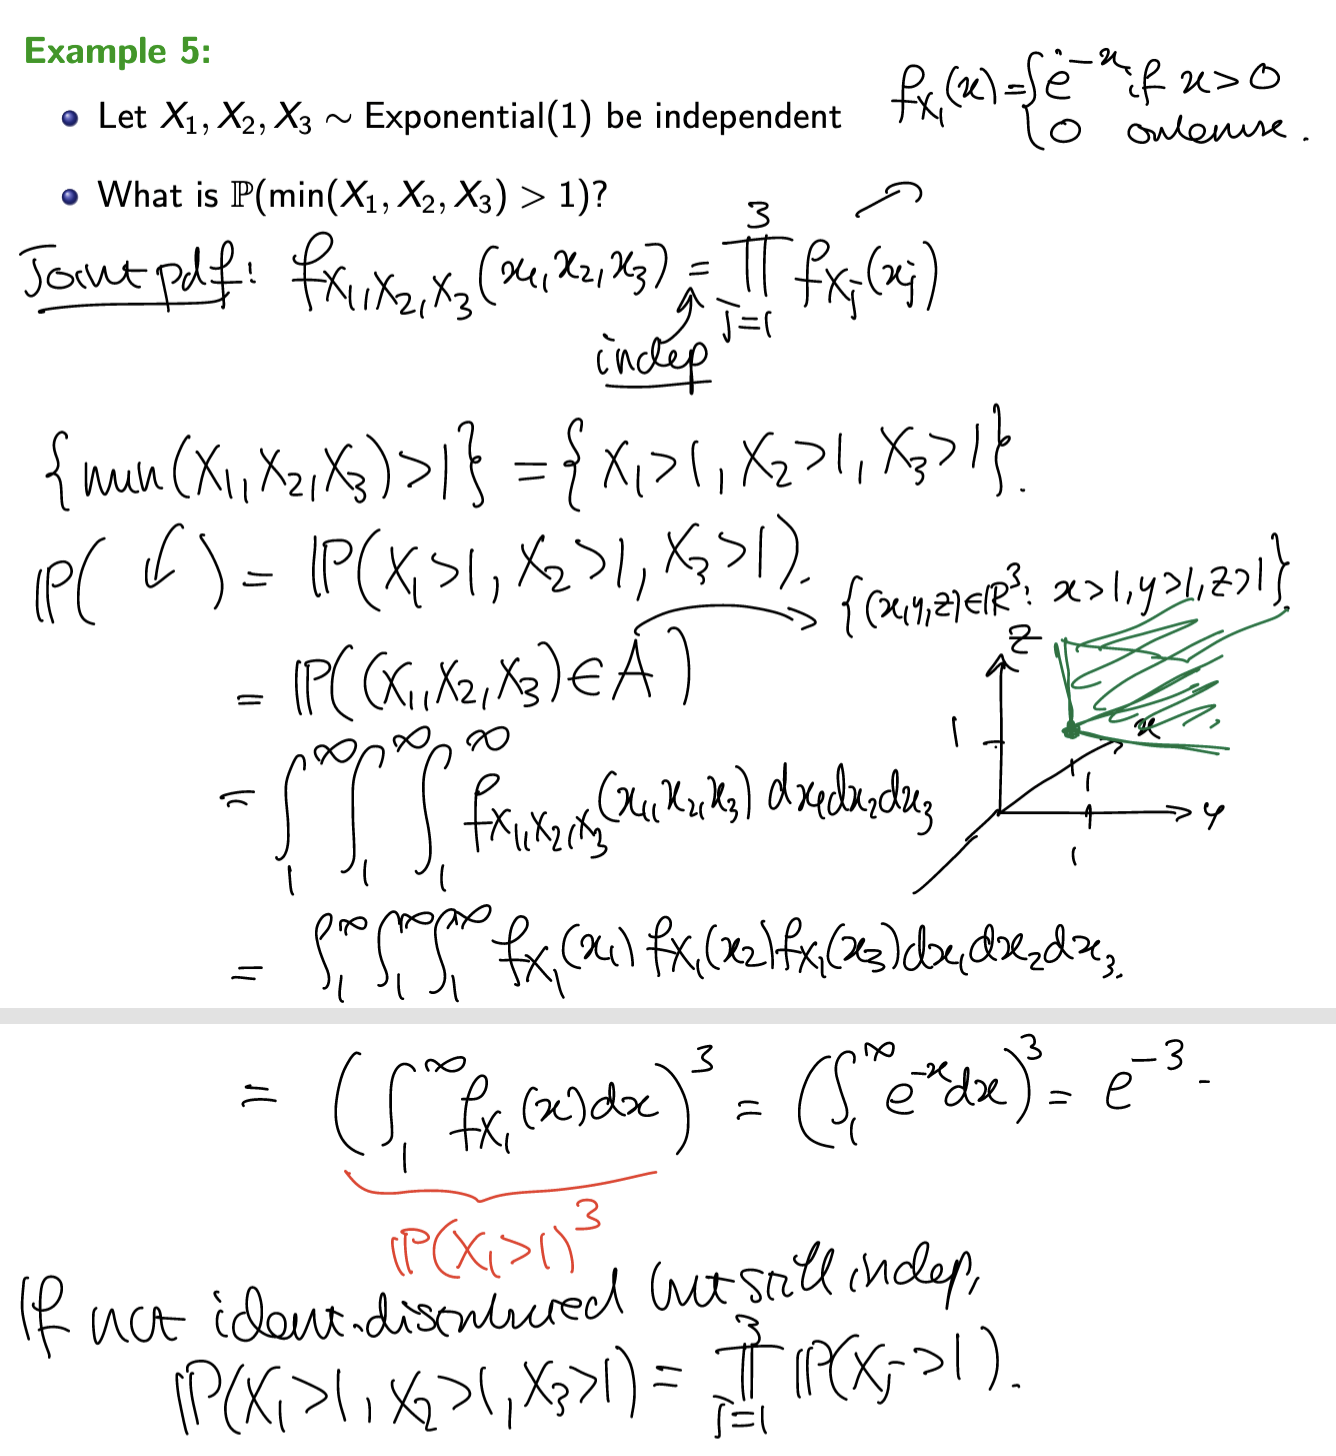 Example 5:
• Let X₁, X₂, X₃ ∼ Exponential(1) be independent
f_{X₁}(x) = { e^{-x} if x > 0
0 otherwise.
• What is ℙ(min(X₁, X₂, X₃) > 1)?
Joint pdf: f_{X₁,X₂,X₃}(x₁,x₂,x₃) = ∏_{j=1}^{3} f_{X_j}(x_j)
indep
{min(X₁,X₂,X₃)>1} = {X₁>1, X₂>1, X₃>1}.
ℙ( ↙ ) = ℙ(X₁>1, X₂>1, X₃>1).
{(x,y,z)∈ℝ³: x>1, y>1, z>1}
= ℙ((X₁,X₂,X₃)∈A)
z
x
y
1
1
1
= ∫₁^∞ ∫₁^∞ ∫₁^∞ f_{X₁,X₂,X₃}(x₁,x₂,x₃) dx₁dx₂dx₃
= ∫₁^∞ ∫₁^∞ ∫₁^∞ f_{X₁}(x₁) f_{X₁}(x₂) f_{X₁}(x₃) dx₁dx₂dx₃.
= (∫₁^∞ f_{X₁}(x)dx)³ = (∫₁^∞ e^{-x}dx)³ = e^{-3}.
ℙ(X₁>1)³
If not ident. distributed but still indep,
ℙ(X₁>1, X₂>1, X₃>1) = ∏_{j=1}^{3} ℙ(X_j>1).